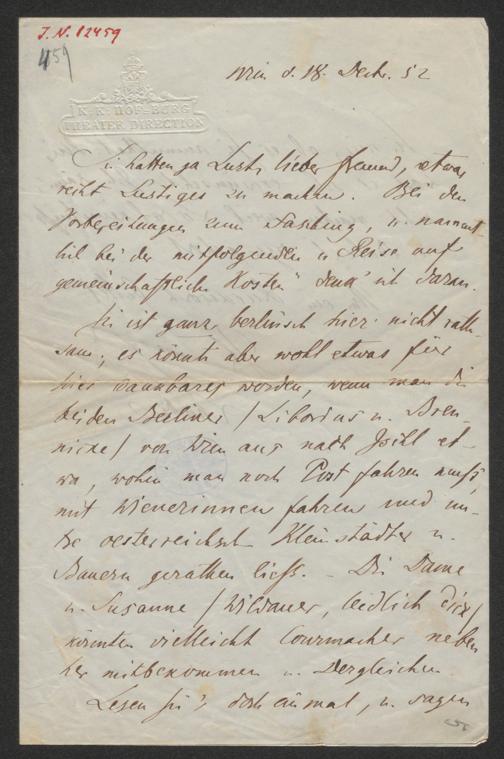 J. N. 82459
459
K. K. HOF-BURG
THEATER DIRECTION
Wien d. 18. Decbr. 52
Sie hatten ja Lust, lieber Freund, etwas
recht Lustiges zu machen. Bei den
Vorbereitungen zum Fasching, u. nament
lich bei der mitfolgenden „Reise auf
gemeinschaftliche Kosten" denk' ich daran.
Sie ist ganz berlinisch hier nicht rath-
sam; es könnte aber wohl etwas für
hier dankbares werden, wenn man die
beiden Berliner /Liborius u. Bren-
nicke/ von Wien aus nach Ischl et-
wa, wohin man noch Post fahren muß,
mit Wienerinnen fahren und un-
ter oesterreichsch Kleinstädter u.
Bauern gerathen ließ. – Die Dame
u. Susanne /Wildauer, leidlich dick/
könnten vielleicht Courmacher neben
her mitbekommen u. Dergleichen
Lesen Sie's doch einmal, u. sagen